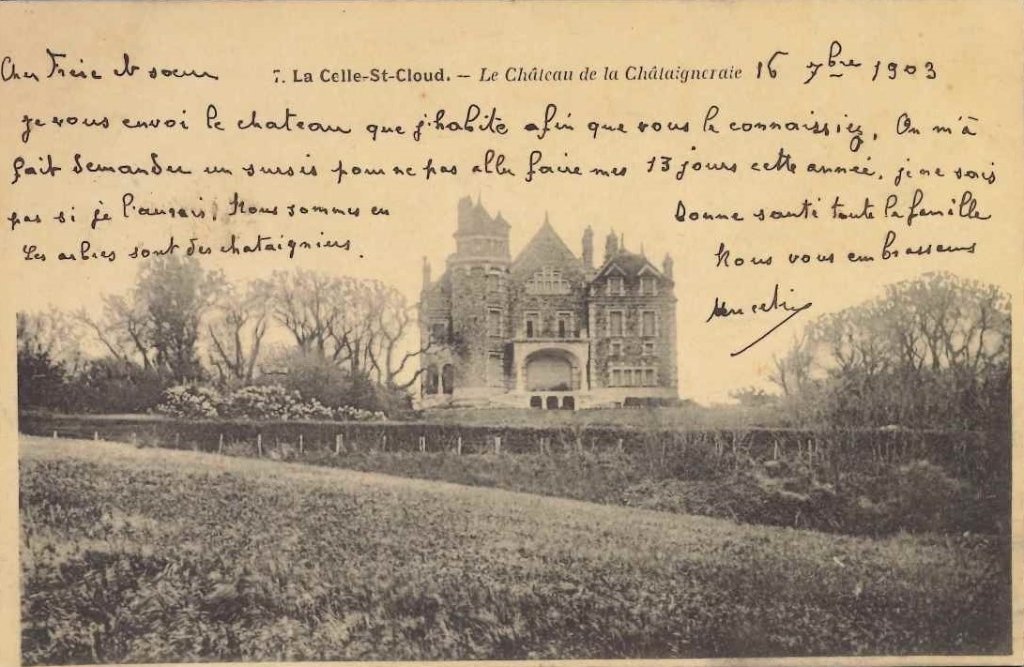 Cher Frère et sœur
7. La Celle-St-Cloud. – Le Château de la Châtaigneraie
16 7bre 1903
je vous envoi le chateau que j'habite afin que vous le connaissiez. On m'à
fait demander un sursis pour ne pas aller faire mes 13 jours cette année, je ne sais
pas si je l'aurais, Nous sommes en
Bonne santé toute la famille
Les arbres sont des chataigniers.
Nous vous embrassons